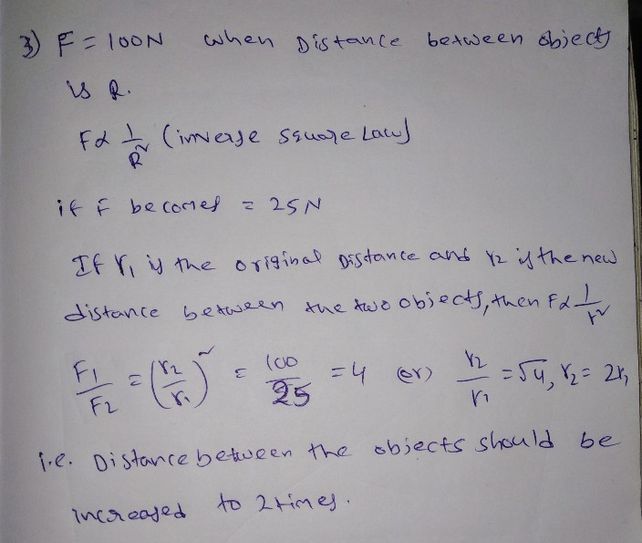 3) F = 100N when Distance between objects
is R.
F α 1/R² (inverse square Law)
if F becomes = 25N
If r₁ is the original Distance and r₂ is the new
distance between the two objects, then F α 1/r²
F₁/F₂ = (r₂/r₁)² = 100/25 = 4 (or) r₂/r₁ = √4, r₂ = 2r₁
i.e. Distance between the objects should be
increased to 2 times.